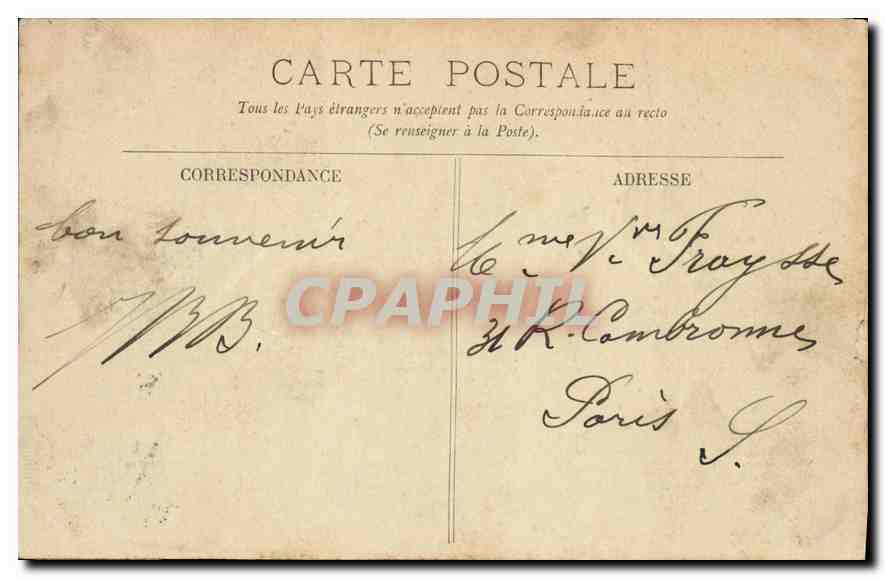 CARTE POSTALE
Tous les Pays étrangers n'acceptent pas la Correspondance au recto
(Se renseigner à la Poste).
CORRESPONDANCE
bon souvenir
BB.
ADRESSE
Mme Vve Fraysse
31 R. Cambronne
Paris
CPAPHIL